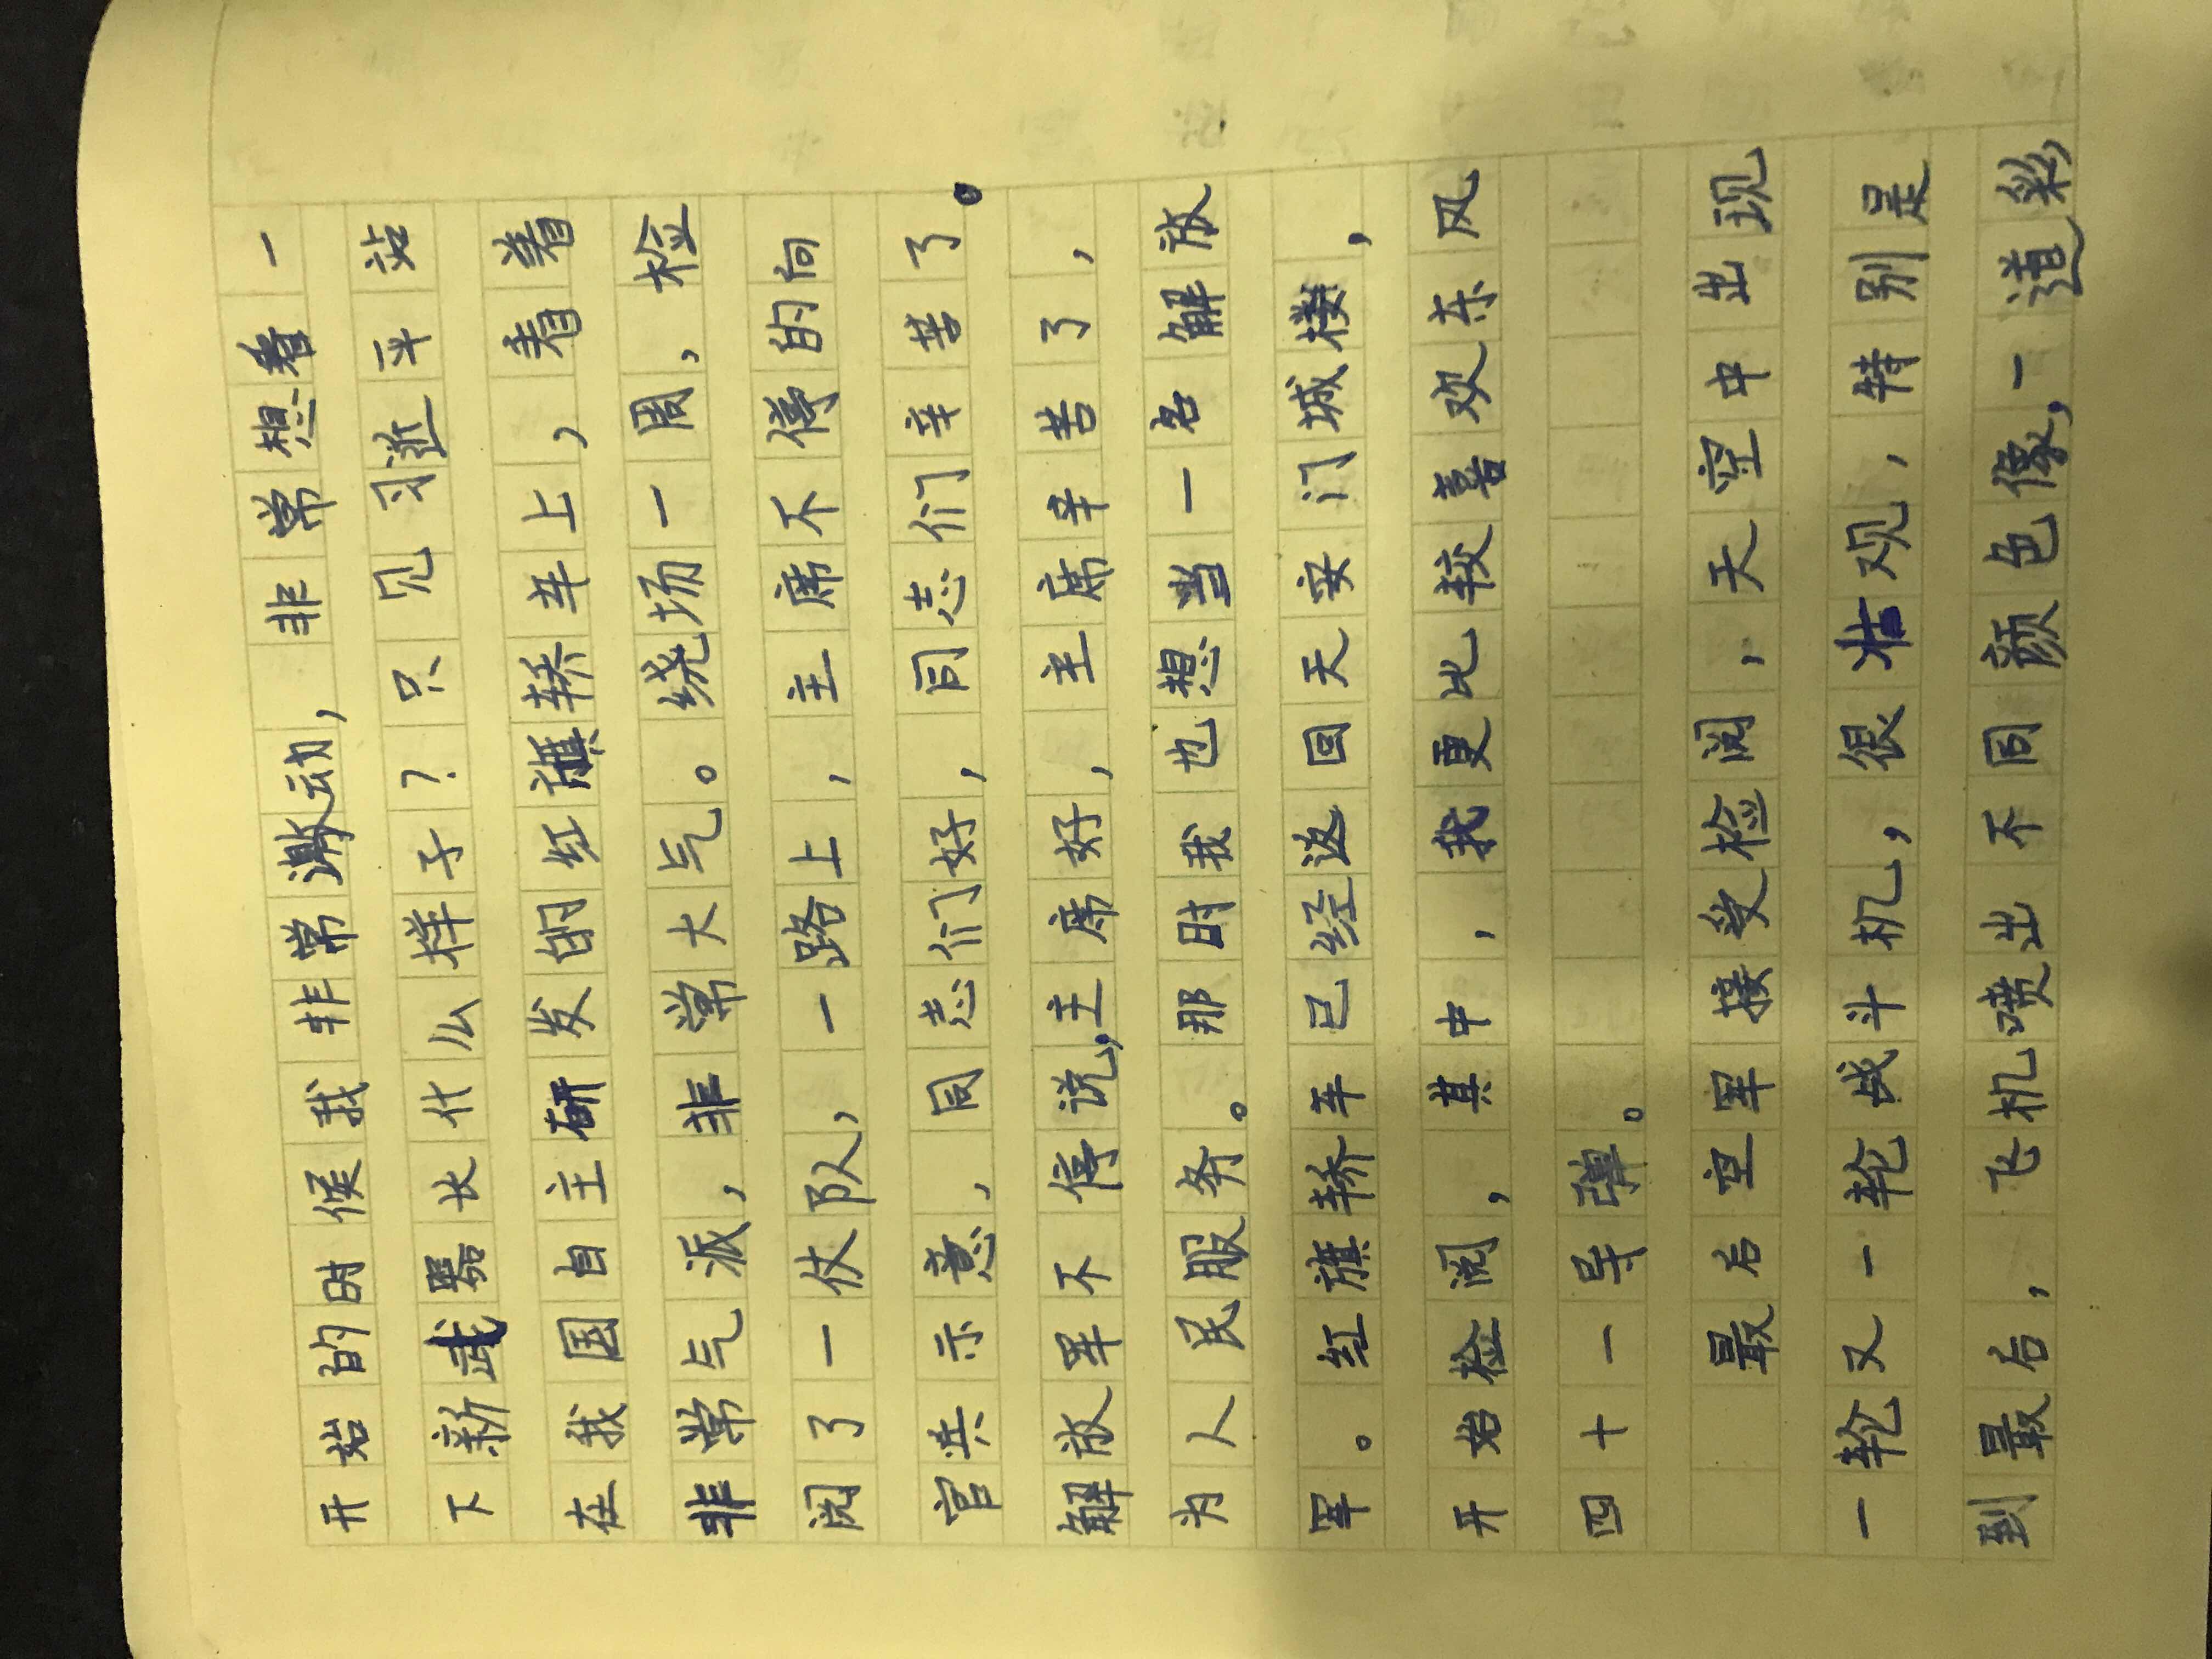 开始的时候我非常激动，非常想看一
下新武器长什么样子？只见习近平站
在我国自主研发的红旗轿车上，看着
非常气派，非常大气。绕场一周，检
阅了一仗队，一路上，主席不停的向
官兵示意，同志们好，同志们辛苦了。
解放军不停说，主席好，主席辛苦了，
为人民服务。那时我也想当一名解放
军。红旗轿车已经返回天安门城楼，
开始检阅，其中，我更比较喜欢东风
四十一导弹。
最后空军接受检阅，天空中出现
一轮又一轮战斗机，很壮观，特别是
到最后，飞机喷出不同颜色像，一道彩